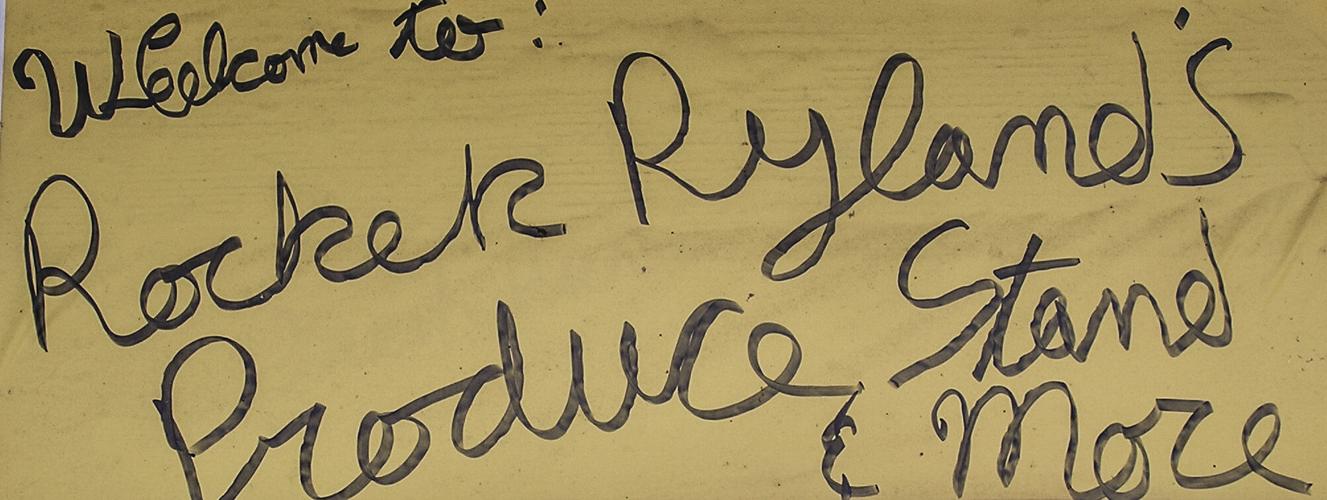 Welcome to:
Rocker Ryland's
Produce Stand
& More